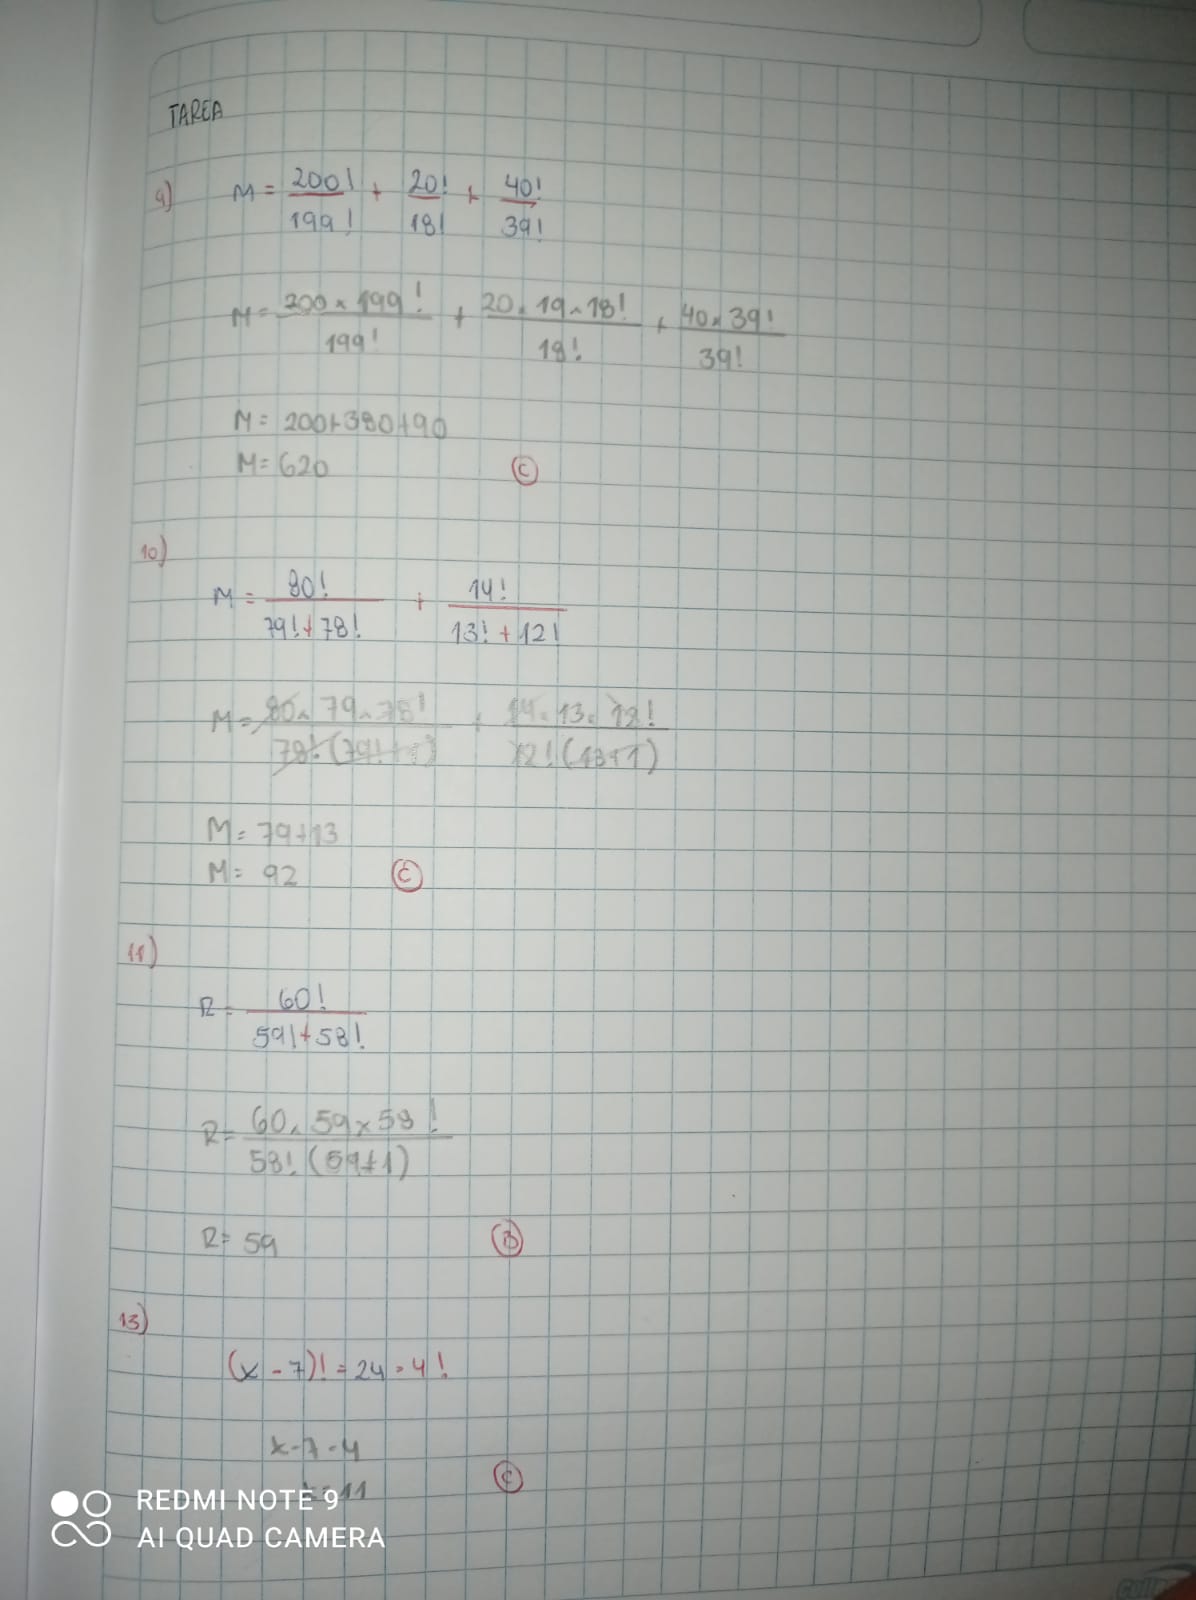 TAREA
9) M = 200!/199! + 20!/18! + 40!/39!
M = 200 x 199!/199! + 20 x 19 x 18!/18! + 40 x 39!/39!
M = 200+380+40
M = 620 C
10)
M = 80!/79!+78! + 14!/13!+12!
M = 80 x 79 x 78!/78!(79!+1) + 14 x 13 x 12!/12!(13+1)
M = 79+13
M = 92 C
11)
R = 60!/59!+58!
R = 60 x 59 x 58!/58!(59+1)
R = 59 B
13)
(x - 7)! = 24 = 4!
x - 7 = 4
x = 11 C
REDMI NOTE 9
AI QUAD CAMERA